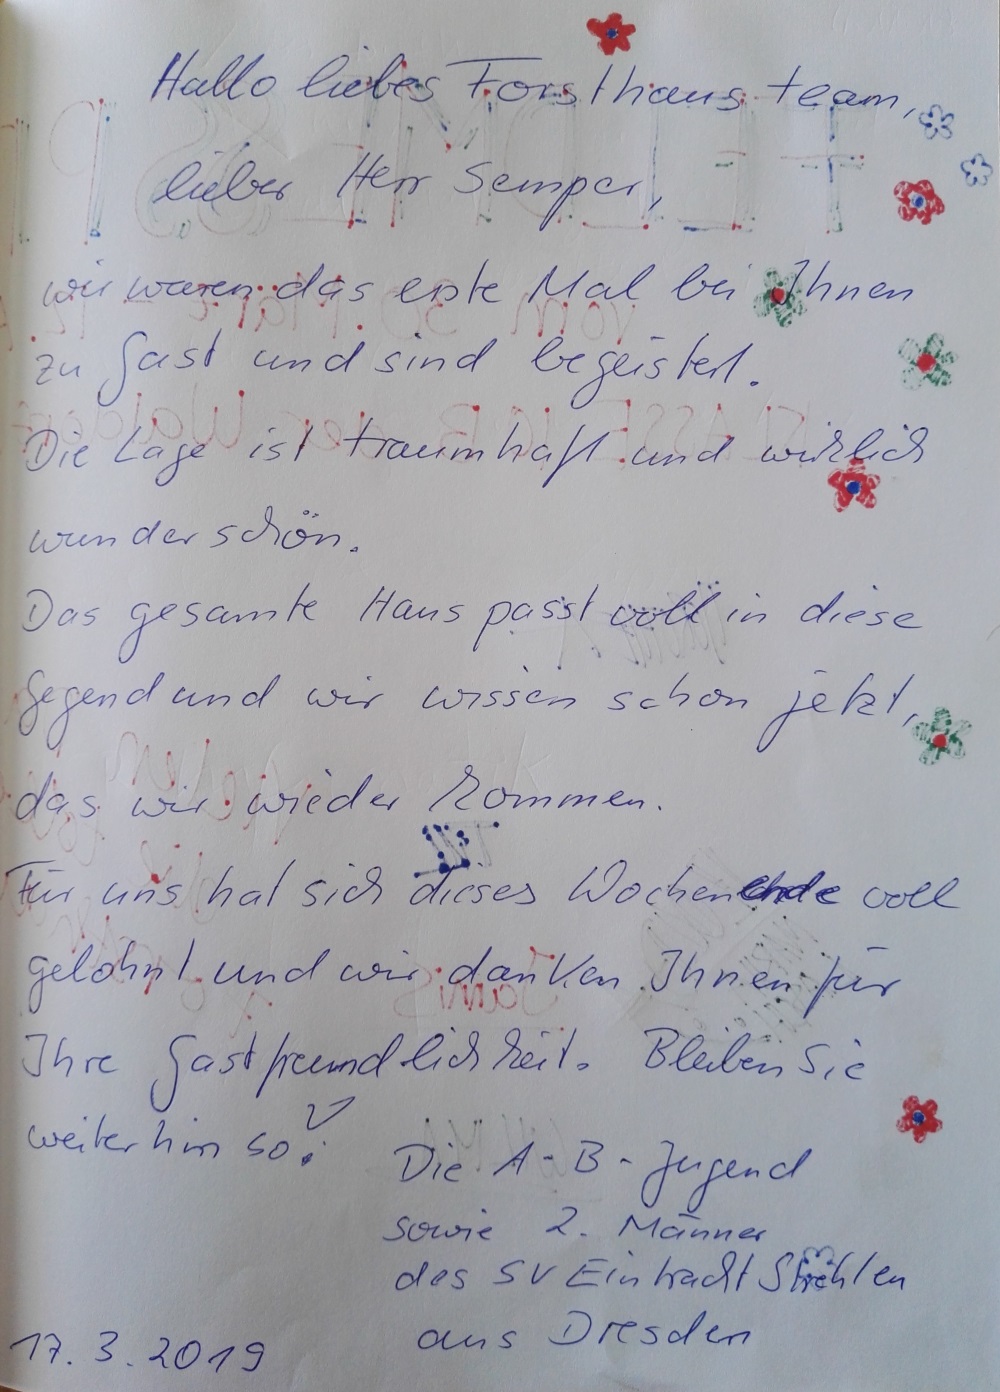 Hallo liebes Forsthausteam,
lieber Herr Semper,
wir waren das erste Mal bei Ihnen
zu Gast und sind begeistert.
Die Lage ist traumhaft und wirklich
wunderschön.
Das gesamte Haus passt voll in diese
Gegend und wir wissen schon jetzt,
das wir wieder kommen.
Für uns hat sich dieses Wochenende voll
gelohnt und wir danken Ihnen für
Ihre Gastfreundlichkeit. Bleiben Sie
weiterhin so!
Die A-B-Jugend
sowie 2. Männer
des SV Eintracht Strehlen
aus Dresden
17.3.2019